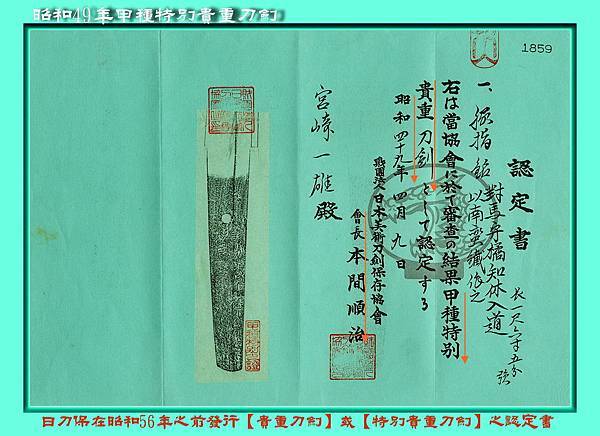 昭和49年甲種特別貴重刀剣
1859
認定書
一、脇指 銘 對馬守橘知休入道
以南蛮鐵作之
長一尺三寸五分強
右は當協會に於て審査の結果甲種特別
貴重刀剣として認定する
昭和四十九年四月九日
財團法人日本美術刀劍保存協會
會長 本間順治
宮崎一雄殿
日刀保在昭和56年之前發行【貴重刀剣】或【特別貴重刀剣】之認定書